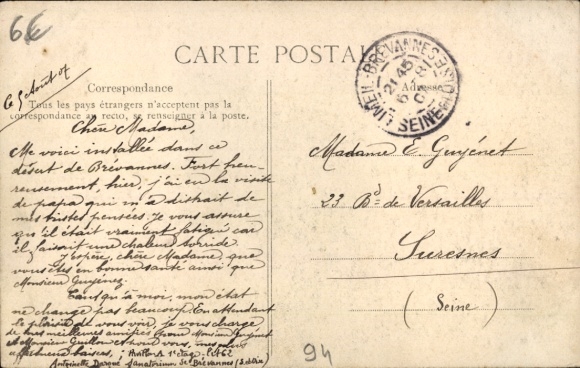 6€
CARTE POSTALE
LIMEIL-BREVANNES SEINE-ET-OISE
21 45
Correspondance
Adresse
Tous les pays étrangers n'acceptent pas la
correspondance au recto, se renseigner à la poste.
Le 5 Août 07
Chère Madame,
Me voici installée dans ce
désert de Brévannes. Fort heu-
reusement, hier, j'ai eu la visite
de papa qui m'a distrait de
mes tristes pensées. Je vous assure
qu'il était vraiment fatigué car
il faisait une chaleur torride
J'espère, chère Madame, que
vous êtes en bonne santé ainsi que
Monsieur Guyénet.
Tant qu'à moi, mon état
ne change pas beaucoup. En attendant
le plaisir de vous voir, je vous charge
de mes meilleures amitiés pour Monsieur Guyénet
et Monsieur Guillon et à vous, mes plus
affectueux baisers,
Antoinette Sanatorium de Brévannes (S. et Oise)
Madame E. Guyénet
23 Bd de Versailles
Suresnes
(Seine)
94